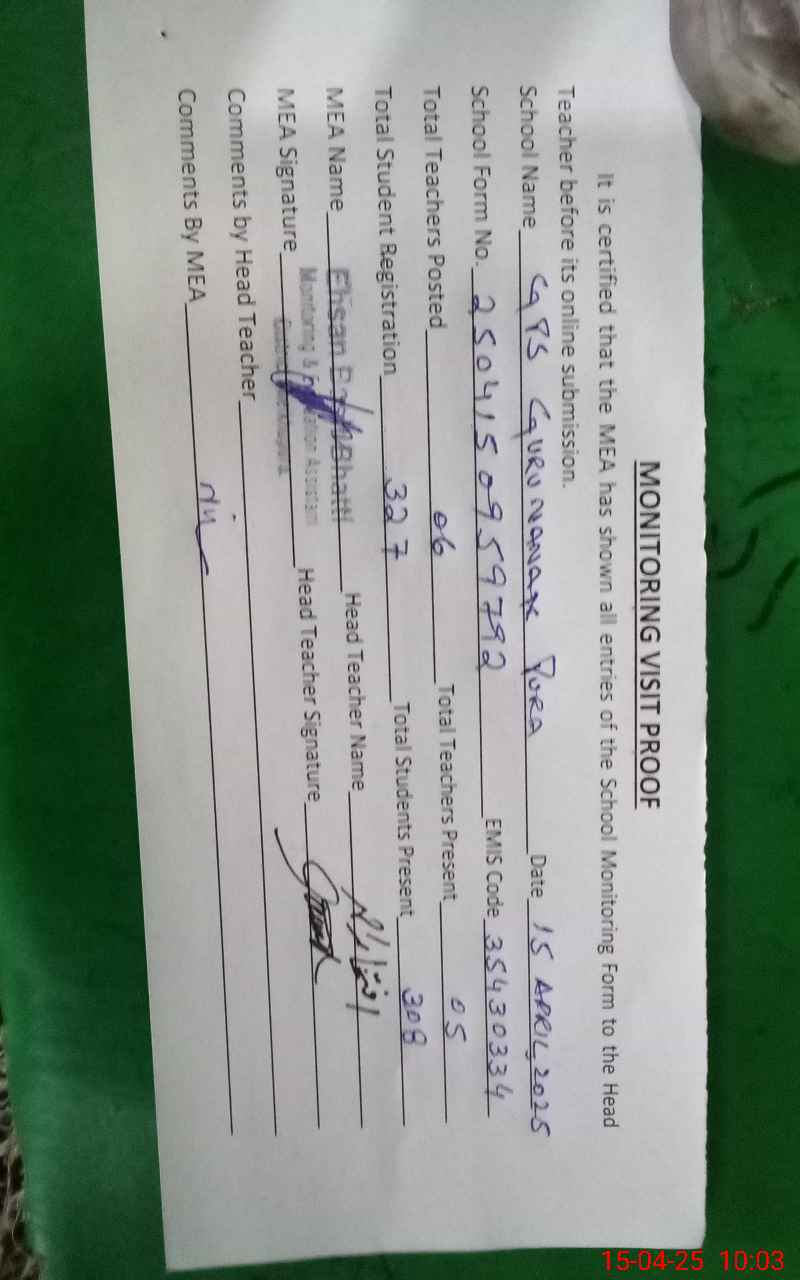 MONITORING VISIT PROOF
It is certified that the MEA has shown all entries of the School Monitoring Form to the Head
Teacher before its online submission.
School Name GPS GURU NANAK PURA Date 15 APRIL, 2025
School Form No. 250415095 9792 EMIS Code 35430334
Total Teachers Posted 06 Total Teachers Present 05
Total Student Registration 327 Total Students Present 308
MEA Name Ehsan Bhatti Head Teacher Name
Monitoring & Evaluation Assistant
MEA Signature Head Teacher Signature
Comments by Head Teacher
Comments By MEA Nil
15-04-25 10:03